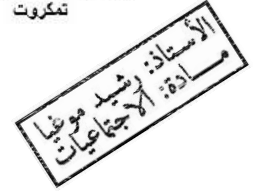 تمكروت
الأستاذ: رشيد موغيا
مادة: الاجتماعيات